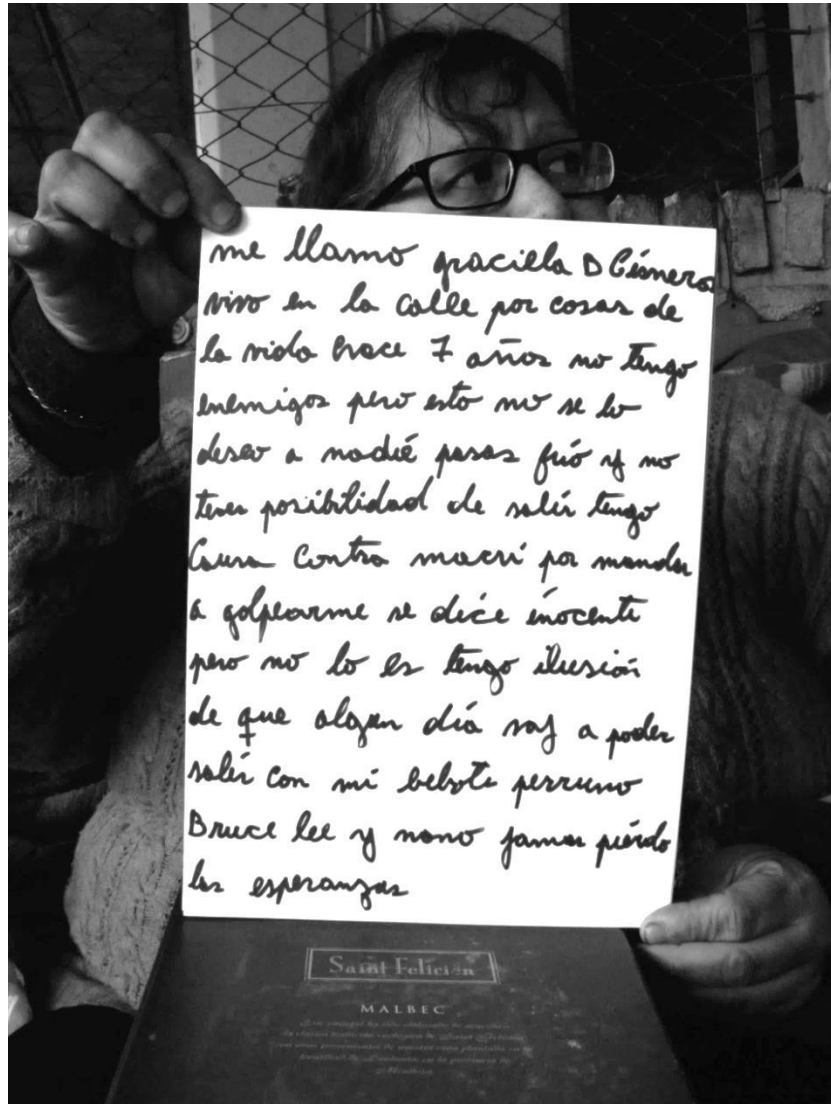 me llamo graciella D Cisneros
vivo en la calle por cosas de
la vida hace 7 años no tengo
enemigos pero esto no se lo
deseo a nadié pasar frió y no
tener posibilidad de salir tengo
Causa Contra macri por mandar
a golpearme se dice inocente
pero no lo es tengo ilusión
de que algun día voy a poder
salir con mi bebote perruno
Bruce lee y nono jamas piérdo
las esperanzas
Saint Felicien
MALBEC